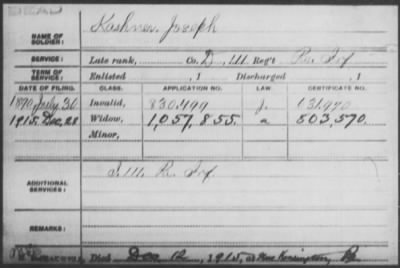 DEAD
NAME OF SOLDIER: Kashner Joseph
SERVICE: Late rank, Co. D, 111 Reg't Pa. Inf.
TERM OF SERVICE: Enlisted , 1 Discharged , 1
DATE OF FILING. CLASS. APPLICATION NO. LAW. CERTIFICATE NO.
1890 July 30 Invalid, 830,499 J. 631,970
1915, Dec, 28 Widow, 1,057,855. a 803,570.
Minor,
ADDITIONAL SERVICES: I. 111. Pa. Inf.
REMARKS:
Died Dec, 12, 1915, at New Kensington, Pa